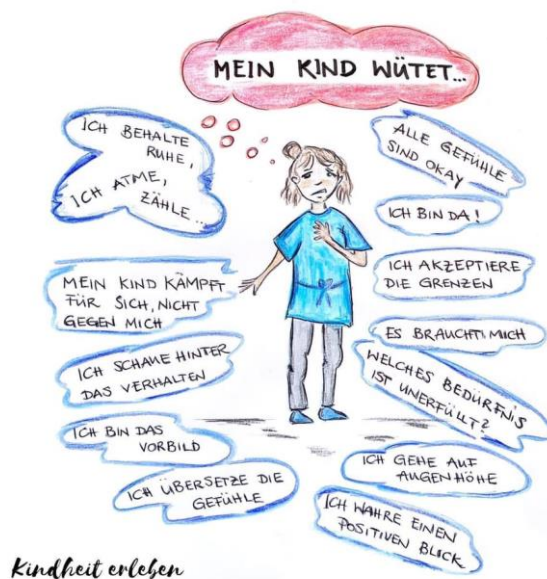 MEIN KIND WÜTET...
ICH BEHALTE
RUHE,
ICH ATME,
ZÄHLE...
MEIN KIND KÄMPFT
FÜR SICH, NICHT
GEGEN MICH
ICH SCHAUE HINTER
DAS VERHALTEN
ICH BIN DAS
VORBILD
ICH ÜBERSETZE DIE
GEFÜHLE
ALLE GEFÜHLE
SIND OKAY
ICH BIN DA!
ICH AKZEPTIERE
DIE GRENZEN
ES BRAUCHT MICH
WELCHES BEDÜRFNIS
IST UNERFÜLLT?
ICH GEHE AUF
AUGENHÖHE
ICH WAHRE EINEN
POSITIVEN BLICK
Kindheit erleben